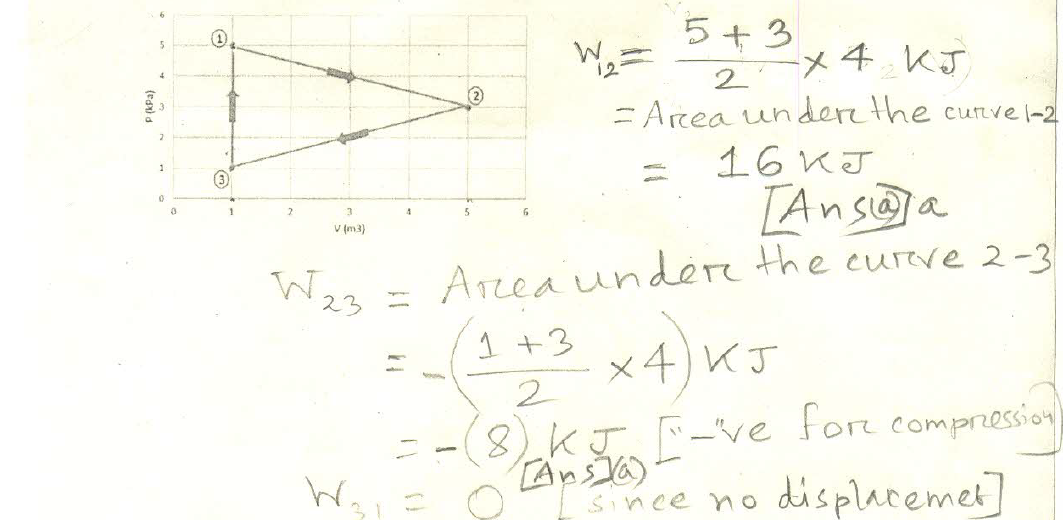 6
5
4
3
2
1
0
P (kPa)
0 1 2 3 4 5 6
V (m3)
①
②
③
W12 = 5 + 3 / 2 × 4 KJ
= Area under the curve 1-2
= 16 KJ
[Ans(a)] a
W23 = Area under the curve 2-3
= -(1 + 3 / 2 × 4) KJ
= -(8) KJ ["-"ve for compression]
[Ans](a)
W31 = 0 [since no displacemet]